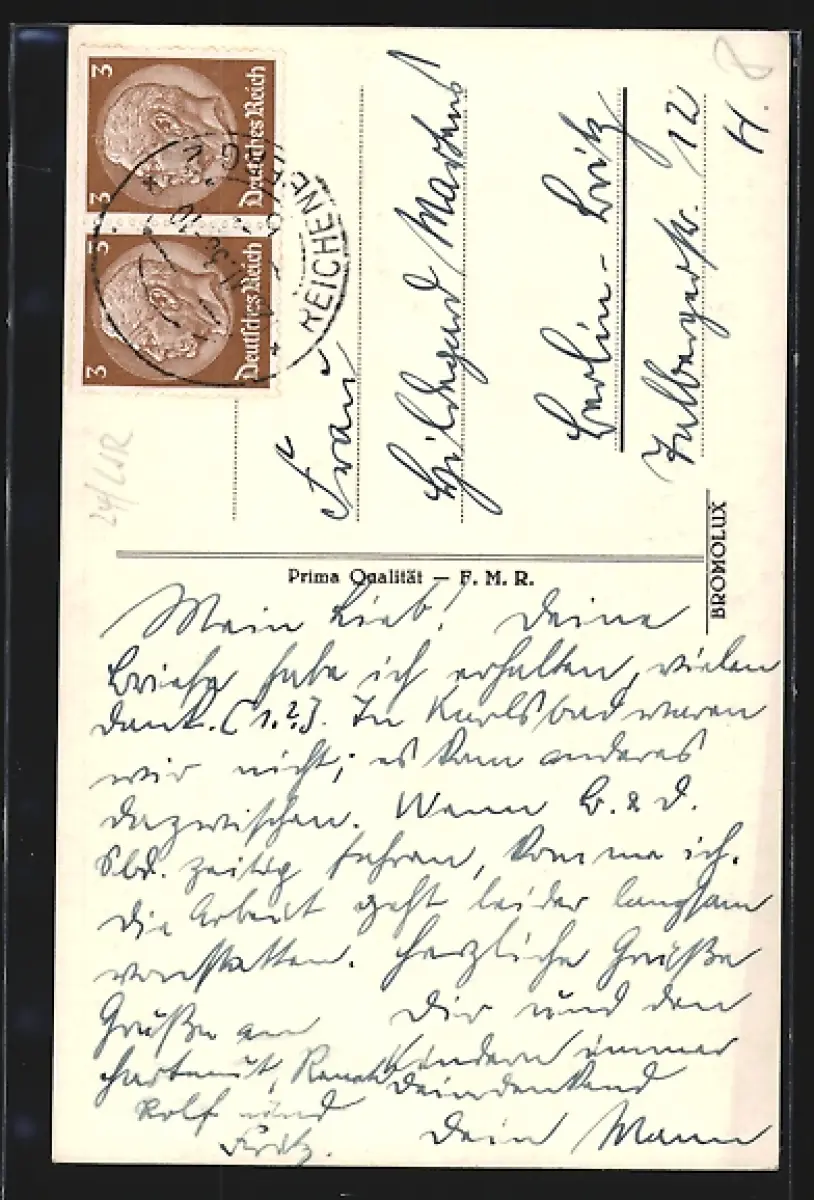 3
3
Deutsches Reich
3
3
Deutsches Reich
REICHENE
8
24/
Frau
Hildegard Martens
Berlin-Britz
Tulbergerstr. 12
H.
BROMOLUX
Prima Qualität — F. M. R.
Mein Lieb! Deine
Briefe habe ich erhalten, vielen
Dank. (1.2.). In Karlsbad waren
wir nicht; es kam anderes
dazwischen. Wenn B. & D.
Sbd. zeitig fahren, komme ich.
Die Arbeit geht leider langsam
vonstatten. Herzliche Grüße
Dir und den
Kindern immer
Deindenkend
Dein Mann
Grüße an
Hartmut, Renate
Rolf und
Fritz.